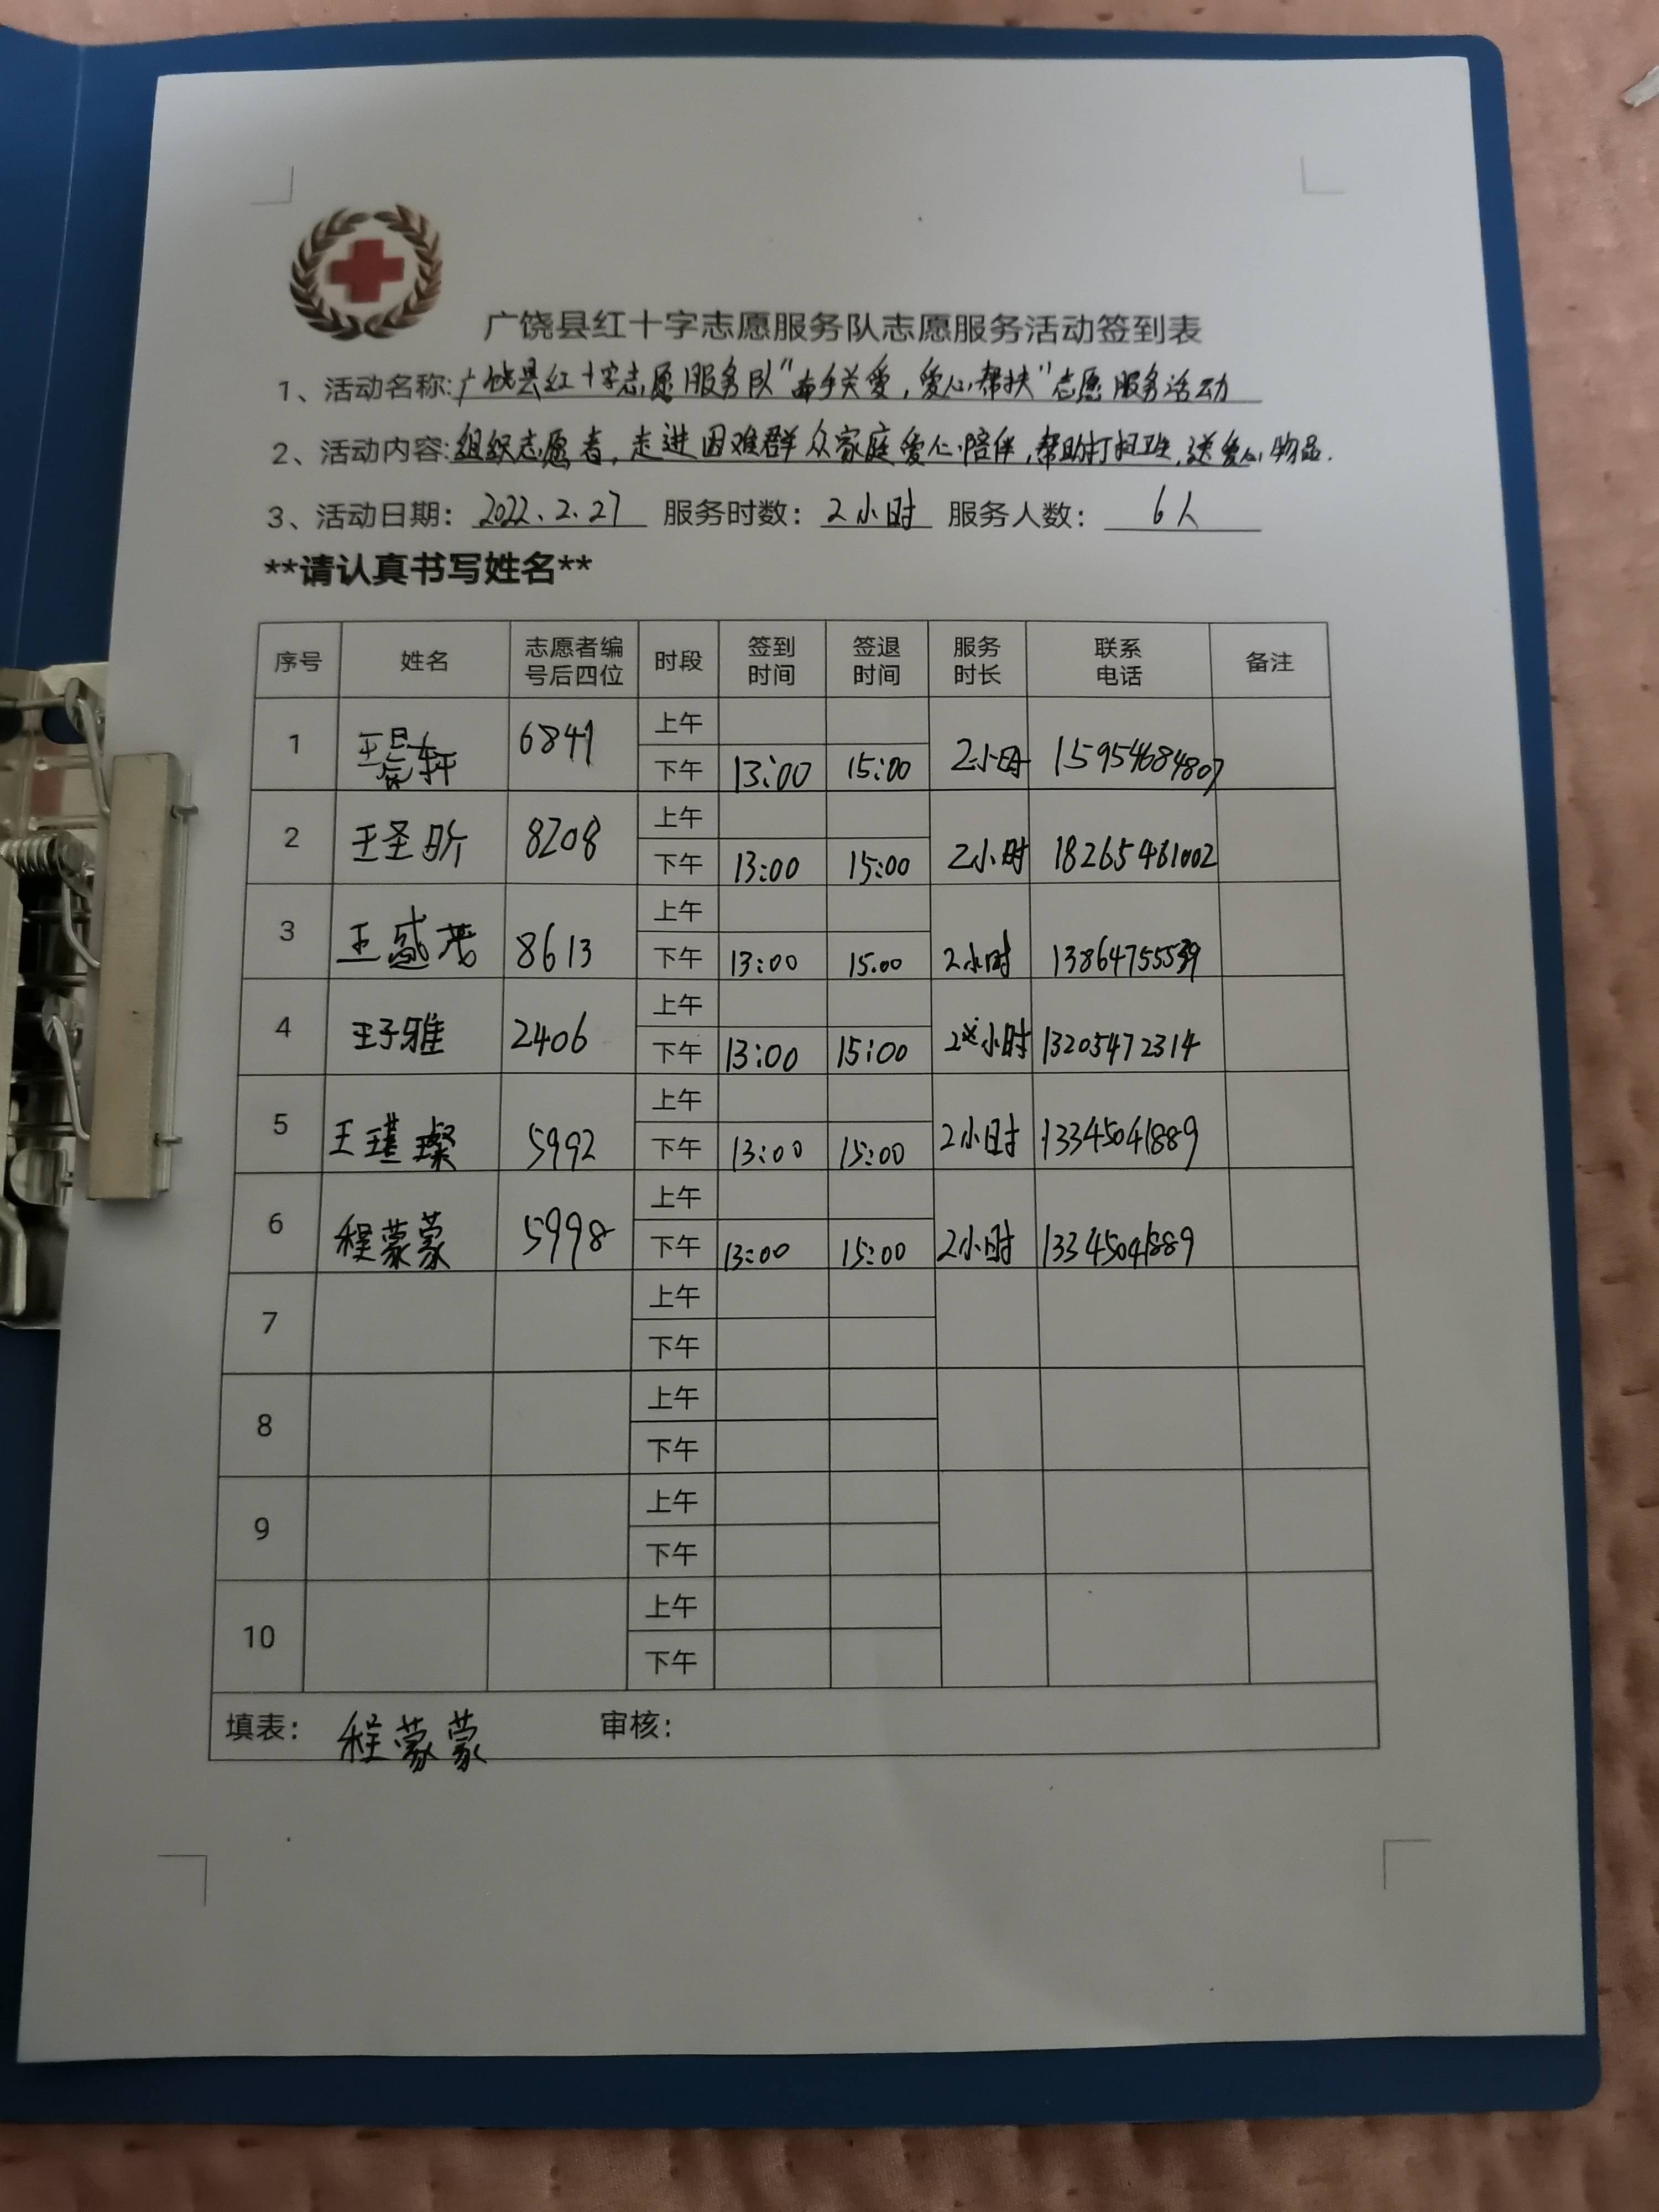 广饶县红十字志愿服务队志愿服务活动签到表
1、活动名称:广饶县红十字志愿服务队"牵手关爱,爱心帮扶"志愿服务活动
2、活动内容:组织志愿者,走进困难群众家庭爱心陪伴,帮助打扫卫生,送爱心物品.
3、活动日期: 2022.2.27 服务时数: 2小时 服务人数: 6人
**请认真书写姓名**
序号 姓名 志愿者编号后四位 时段 签到时间 签退时间 服务时长 联系电话 备注
1 6841 上午
下午 13:00 15:00 2小时 15954684807
2 王圣昕 8208 上午
下午 13:00 15:00 2小时 18265461002
3 王盛茂 8613 上午
下午 13:00 15:00 2小时
4 王子雅 2406 上午
下午 13:00 15:00 2小时 13205472314
5 王瑾璨 5992 上午
下午 13:00 15:00 2小时 13345041889
6 程蒙蒙 5998 上午
下午 13:00 15:00 2小时 13345041889
7 上午
下午
8 上午
下午
9 上午
下午
10 上午
下午
填表: 程蒙蒙 审核: